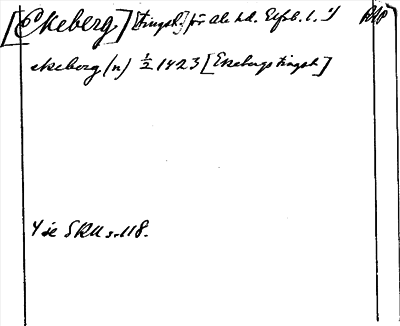 [Ekeberg] [Tingst.] för Ale hd. Elfsb. l. 1) RAp
ekeberg (n) ½ 1423 [Ekebergs tingst]
1 se SRU s. 118.